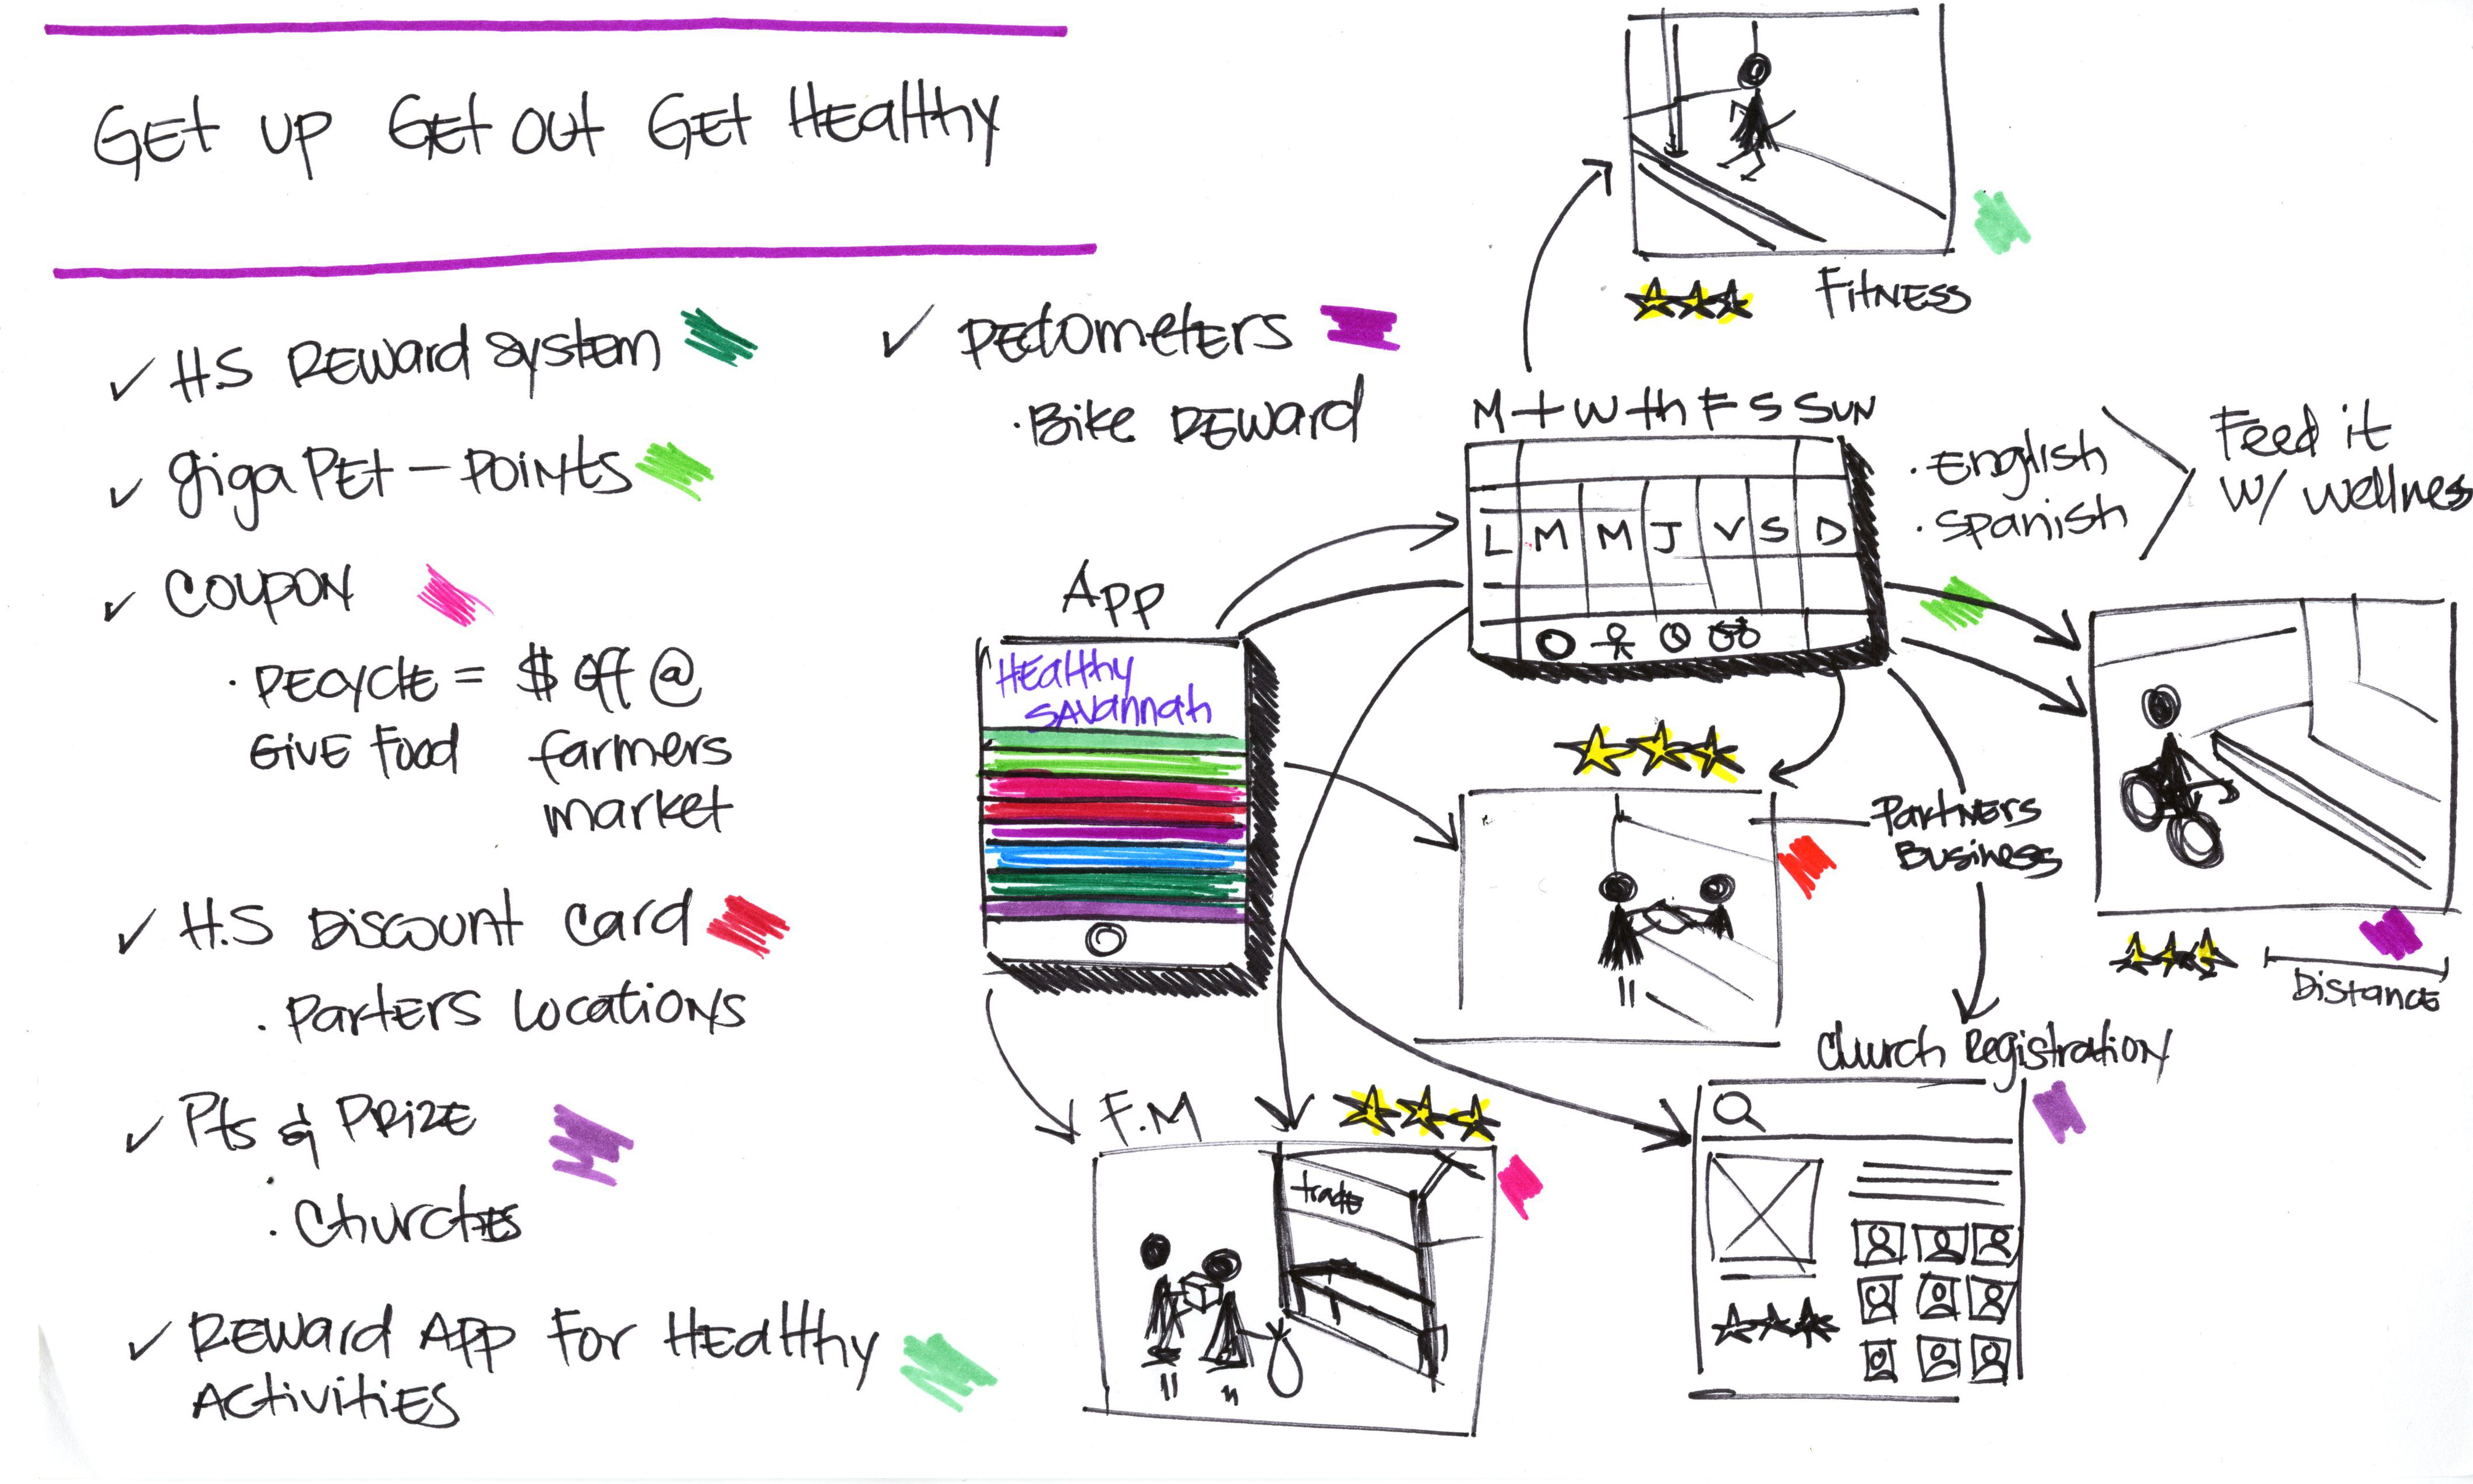 GEt up GEt out GEt HEalthy
✓ HS REward system
✓ giga PEt – POiNts
✓ COUPON
· RECYClE = $ off @
GiVE food farmers
market
✓ H.S DiscouNt Card
· PartERS LocatioNs
✓ Pts & PRiZE
· ChurchEs
✓ REWard APP For HEalthy
ActiVitiES
✓ PEdometERS
· BikE REWard
FitNESS
M t W th F S SUN
L M M J V S D
· ENglish
· Spanish
Feed it
w/ wellness
App
HEalthy
SAVannah
PartNERS
BusiNess
DistaNCE
Church REgistratioN
F.M
tradE